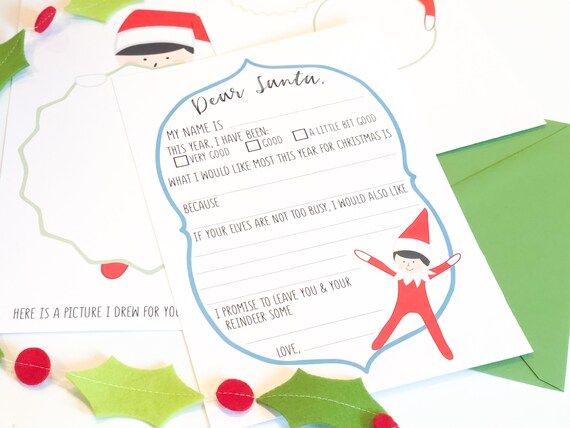 Dear Santa,
MY NAME IS
THIS YEAR, I HAVE BEEN:
VERY GOOD GOOD A LITTLE BIT GOOD
WHAT I WOULD LIKE MOST THIS YEAR FOR CHRISTMAS IS
BECAUSE
IF YOUR ELVES ARE NOT TOO BUSY, I WOULD ALSO LIKE
I PROMISE TO LEAVE YOU & YOUR
REINDEER SOME
LOVE,
HERE IS A PICTURE I DREW FOR YOU